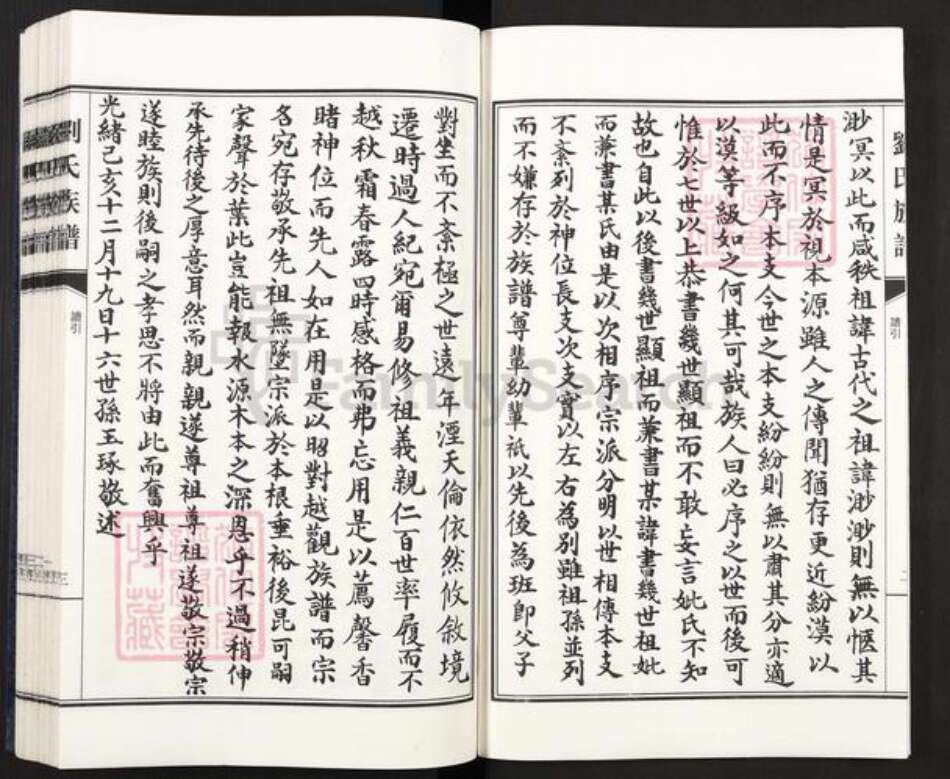 劉氏族譜
譜引
渺冥以此而咸秩祖諱古代之祖諱渺渺則無以愜其
情是冥於視本源雖人之傳聞猶存更近紛漠以
此而不序本支今世之本支紛紛則無以肅其分亦適
以漠等級如之何其可哉族人曰必序之以世而後可
惟於七世以上恭書幾世顯祖而不敢妄言妣氏不知
故也自此以後書幾世顯祖而兼書某諱書幾世祖妣
而兼書某氏由是以次相序宗派分明以世相傳本支
不紊列於神位長支次支實以左右為別雖祖孫並列
而不嫌存於族譜尊輩幼輩祇以先後為班即父子
對坐而不紊極之世遠年湮天倫依然攸敘境
遷時過人紀宛爾易修祖義親仁百世率履而不
越秋霜春露四時感格而弗忘用是以薦馨香
睹神位而先人如在用是以昭對越觀族譜而宗
名宛存敬承先祖無墜宗派於本根垂裕後昆可嗣
家聲於葉此豈能報水源木本之深恩乎不過稍伸
承先待後之厚意耳然而親親遂尊祖尊祖遂敬宗敬宗
遂睦族則後嗣之孝思不將由此而奮興乎
光緒己亥十二月十九日十六世孫玉琢敬述
劉氏族譜
譜引
FamilySearch